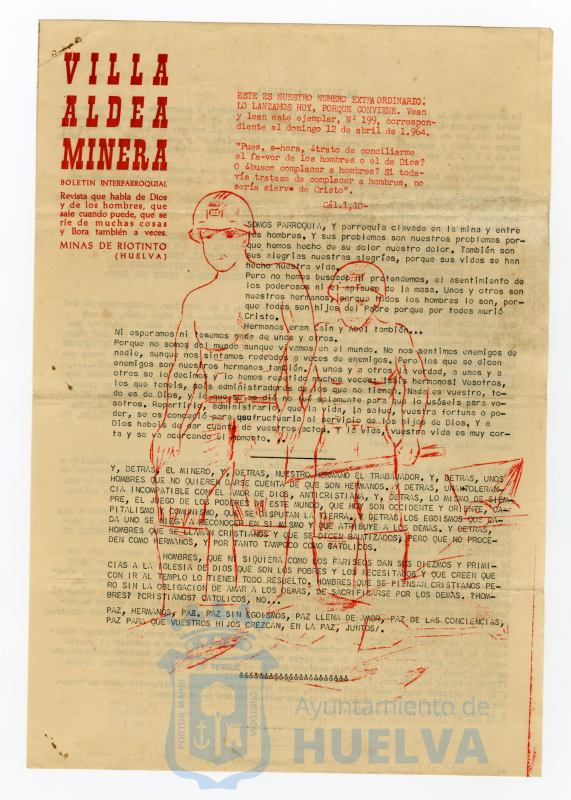 VILLA
ALDEA
MINERA
BOLETIN INTERPARROQUIAL
Revista que habla de Dios
y de los hombres, que
sale cuando puede, que se
ríe de muchas cosas
y llora también a veces.
MINAS DE RIOTINTO
(HUELVA)
ESTE ES NUESTRO NUMERO EXTRAORDINARIO.
LO LANZAMOS HOY, PORQUE CONVIENE. Vean
y lean este ejemplar, Nº 199, correspon-
diente al domingo 12 de abril de 1.964.
"Pues, a-hora, ¿trato de conciliarme
el fa-vor de los hombres o el de Dios?
O ¿busco complacer a hombres? Si toda-
vía tratase de complacer a hombres, no
sería siervo de Cristo".
Gál.1,10-
SOMOS PARROQUIA, Y parroquia clavada en la mina y entre
los hombres. Y sus problemas son nuestros problemas por-
que hemos hecho de su dolor nuestro dolor. También son
sus alegrías nuestras alegrías, porque sus vidas se han
hecho nuestra vida.
Pero no hemos buscado ni pretendemos, el asentimiento de
los poderosos ni el aplauso de la masa. Unos y otros son
nuestros hermanos, porque todos los hombres lo son, por-
que todos son hijos del Padre porque por todos murió
Cristo.
Hermanos eran Caín y Abel también...
Ni esperamos ni tememos nada de unos y otros.
Porque no somos del mundo aunque vivamos en el mundo. No nos sentimos enemigos de
nadie, aunque nos sintamos rodeados a veces de enemigos. Pero los que se dicen
enemigos son nuestros hermanos también. A unos y a otros la verdad, a unos y a
otros se lo decimos y lo hemos repetido muchas veces: ¡Sois hermanos! Vosotros,
los que tenéis, sois administradores de los que no tienen. Nada es vuestro, to-
do es de Dios, y lo que os dio no es solamente para que lo uséis para vo-
sotros. Repartirlo, administrarlo, que la vida, la salud, vuestra fortuna o po-
der, se os concedió para usufructuarla al servicio de los hijos de Dios. Y a
Dios habéis de dar cuenta de vuestros actos. Y la vida, vuestra vida es muy cor-
ta y se va acercando el momento.
Y, DETRAS, EL MINERO, Y, DETRAS, NUESTRO HERMANO EL TRABAJADOR. Y, DETRAS, UNOS
HOMBRES QUE NO QUIEREN DARSE CUENTA DE QUE SON HERMANOS. Y, DETRAS, UNA TOLERAN-
CIA INCOMPATIBLE CON EL AMOR DE DIOS, ANTICRISTIANA, Y, DETRAS, LO MISMO DE SIEM-
PRE, EL JUEGO DE LOS PODERES DE ESTE MUNDO, QUE HOY SON OCCIDENTE Y ORIENTE, CA-
PITALISMO Y COMUNISMO, QUE SE DISPUTAN LA TIERRA. Y DETRAS LOS EGOISMOS QUE CA-
DA UNO SE NIEGA A RECONOCER EN SI MISMO Y QUE ATRIBUYE A LOS DEMAS. Y DETRAS,
HOMBRES QUE SE LLAMAN CRISTIANOS Y QUE SE DICEN BAUTIZADOS, PERO QUE NO PROCE-
DEN COMO HERMANOS, Y POR TANTO TAMPOCO COMO CATOLICOS.
HOMBRES, QUE NI SIQUIERA COMO LOS FARISEOS DAN SUS DIEZMOS Y PRIMI-
CIAS A LA IGLESIA DE DIOS QUE SON LOS POBRES Y LOS NECESITADOS Y QUE CREEN QUE
CON IR AL TEMPLO LO TIENEN TODO RESUELTO. HOMBRES QUE SE PIENSAN CRISTIANOS PE-
RO SIN LA OBLIGACION DE AMAR A LOS DEMAS, DE SACRIFICARSE POR LOS DEMAS. ?HOM-
BRES? ?CRISTIANOS? CATOLICOS, NO...
PAZ, HERMANOS, PAZ. PAZ SIN EGOISMOS, PAZ LLENA DE AMOR, PAZ DE LAS CONCIENCIAS,
PAZ PARA QUE VUESTROS HIJOS CREZCAN, EN LA PAZ, JUNTOS/.
&&&&&&&&&&&&&&&&&&&&&&
PORTUS MARIS
CUSTODIA
Ayuntamiento de
HUELVA